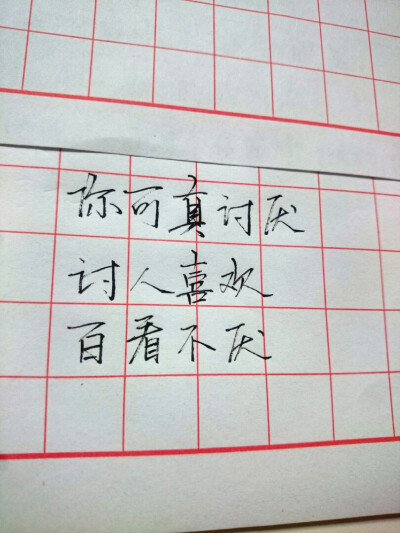 你可真讨厌
讨人喜欢
百看不厌